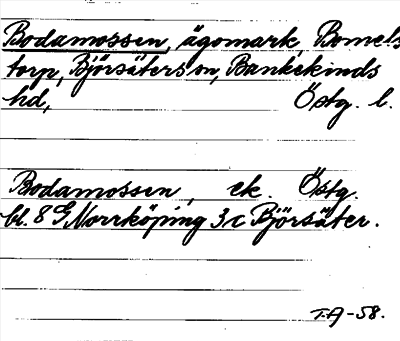 Bodamossen, ägomark, Bomels
torp, Björsäters sn, Bankekinds
hd, Östg. l.
Bodamossen, ek. Östg.
bl. 8 G Norrköping 3 c Björsäter.
T.A -58.